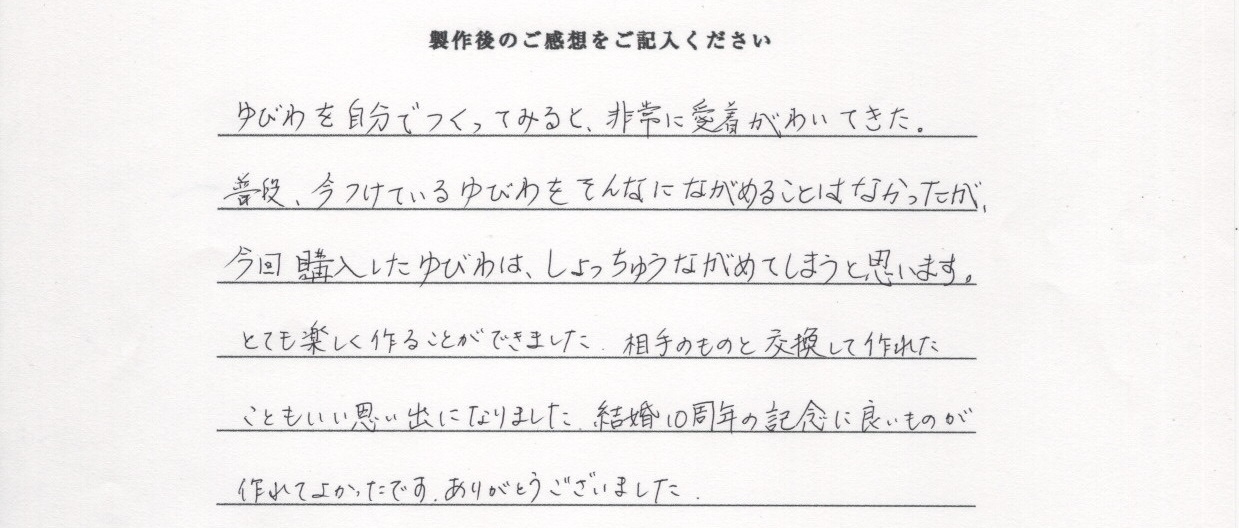 製作後のご感想をご記入ください
ゆびわを自分でつくってみると、非常に愛着がわいてきた。
普段、今つけているゆびわをそんなにながめることはなかったが、
今回購入したゆびわは、しょっちゅうながめてしまうと思います。
とても楽しく作ることができました. 相手のものと交換して作れた
こともいい思い出になりました. 結婚10周年の記念に良いものが
作れてよかったです. ありがとうございました.